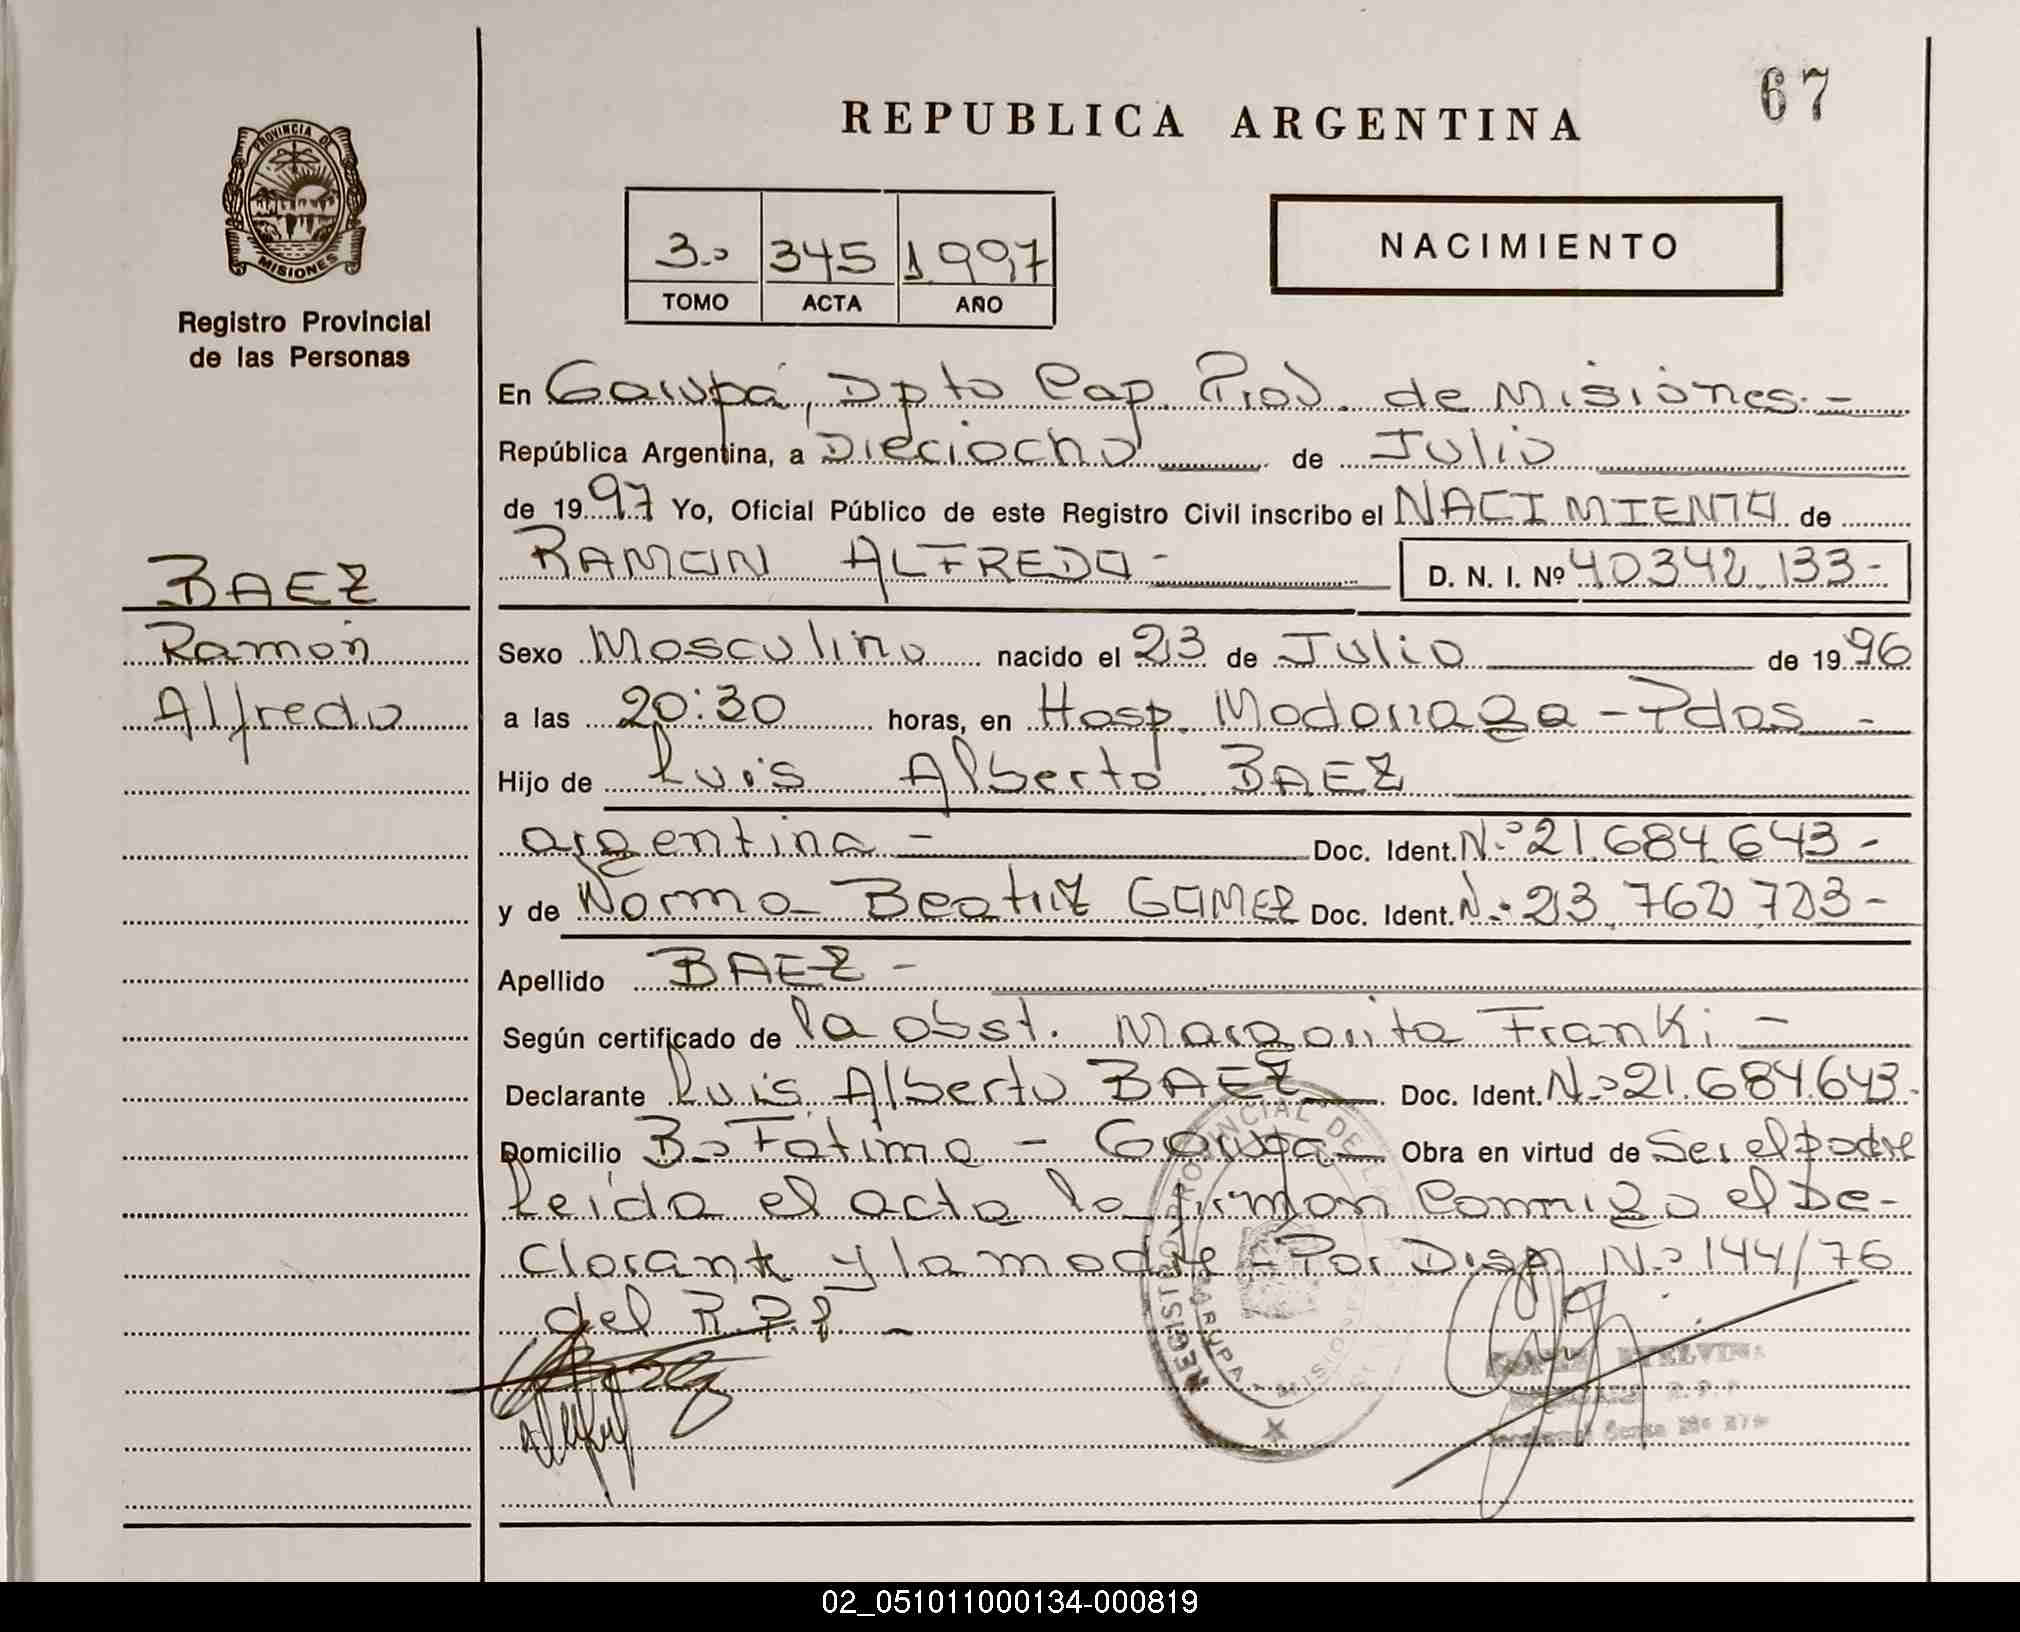 67
REPUBLICA ARGENTINA
PROVINCIA DE
MISIONES
Registro Provincial
de las Personas
3.º 345 1997
TOMO ACTA AÑO
NACIMIENTO
En Garupá, Dpto Cap. Prov. de Misiones.-
República Argentina, a Dieciocho de Julio
de 1997 Yo, Oficial Público de este Registro Civil inscribo el NACIMIENTO de
RAMON ALFREDO - D. N. I. Nº 40342.133-
BAEZ
Ramón
Alfredo
Sexo Masculino nacido el 23 de Julio de 1996
a las 20:30 horas, en Hosp. Madariaga - Pdas -
Hijo de Luis Alberto BAEZ
argentina - Doc. Ident. N.º 21.684.643-
y de Norma Beatriz GOMEZ Doc. Ident. N.º 23.760.703-
Apellido BAEZ -
Según certificado de la obst. Margarita Franki -
Declarante Luis Alberto BAEZ Doc. Ident. N.º 21.684.643.
Domicilio Bº Fátima - Garupá Obra en virtud de Ser el padre
Leida el acta la firman Conmigo el De-
clarante y la madre - Por Disp. N.º 144/76
del R.P.P -
REGISTRO PROVINCIAL DE LAS
GARUPA - MISIONES
GOMEZ ETELVINA
R.P.P.
02_051011000134-000819